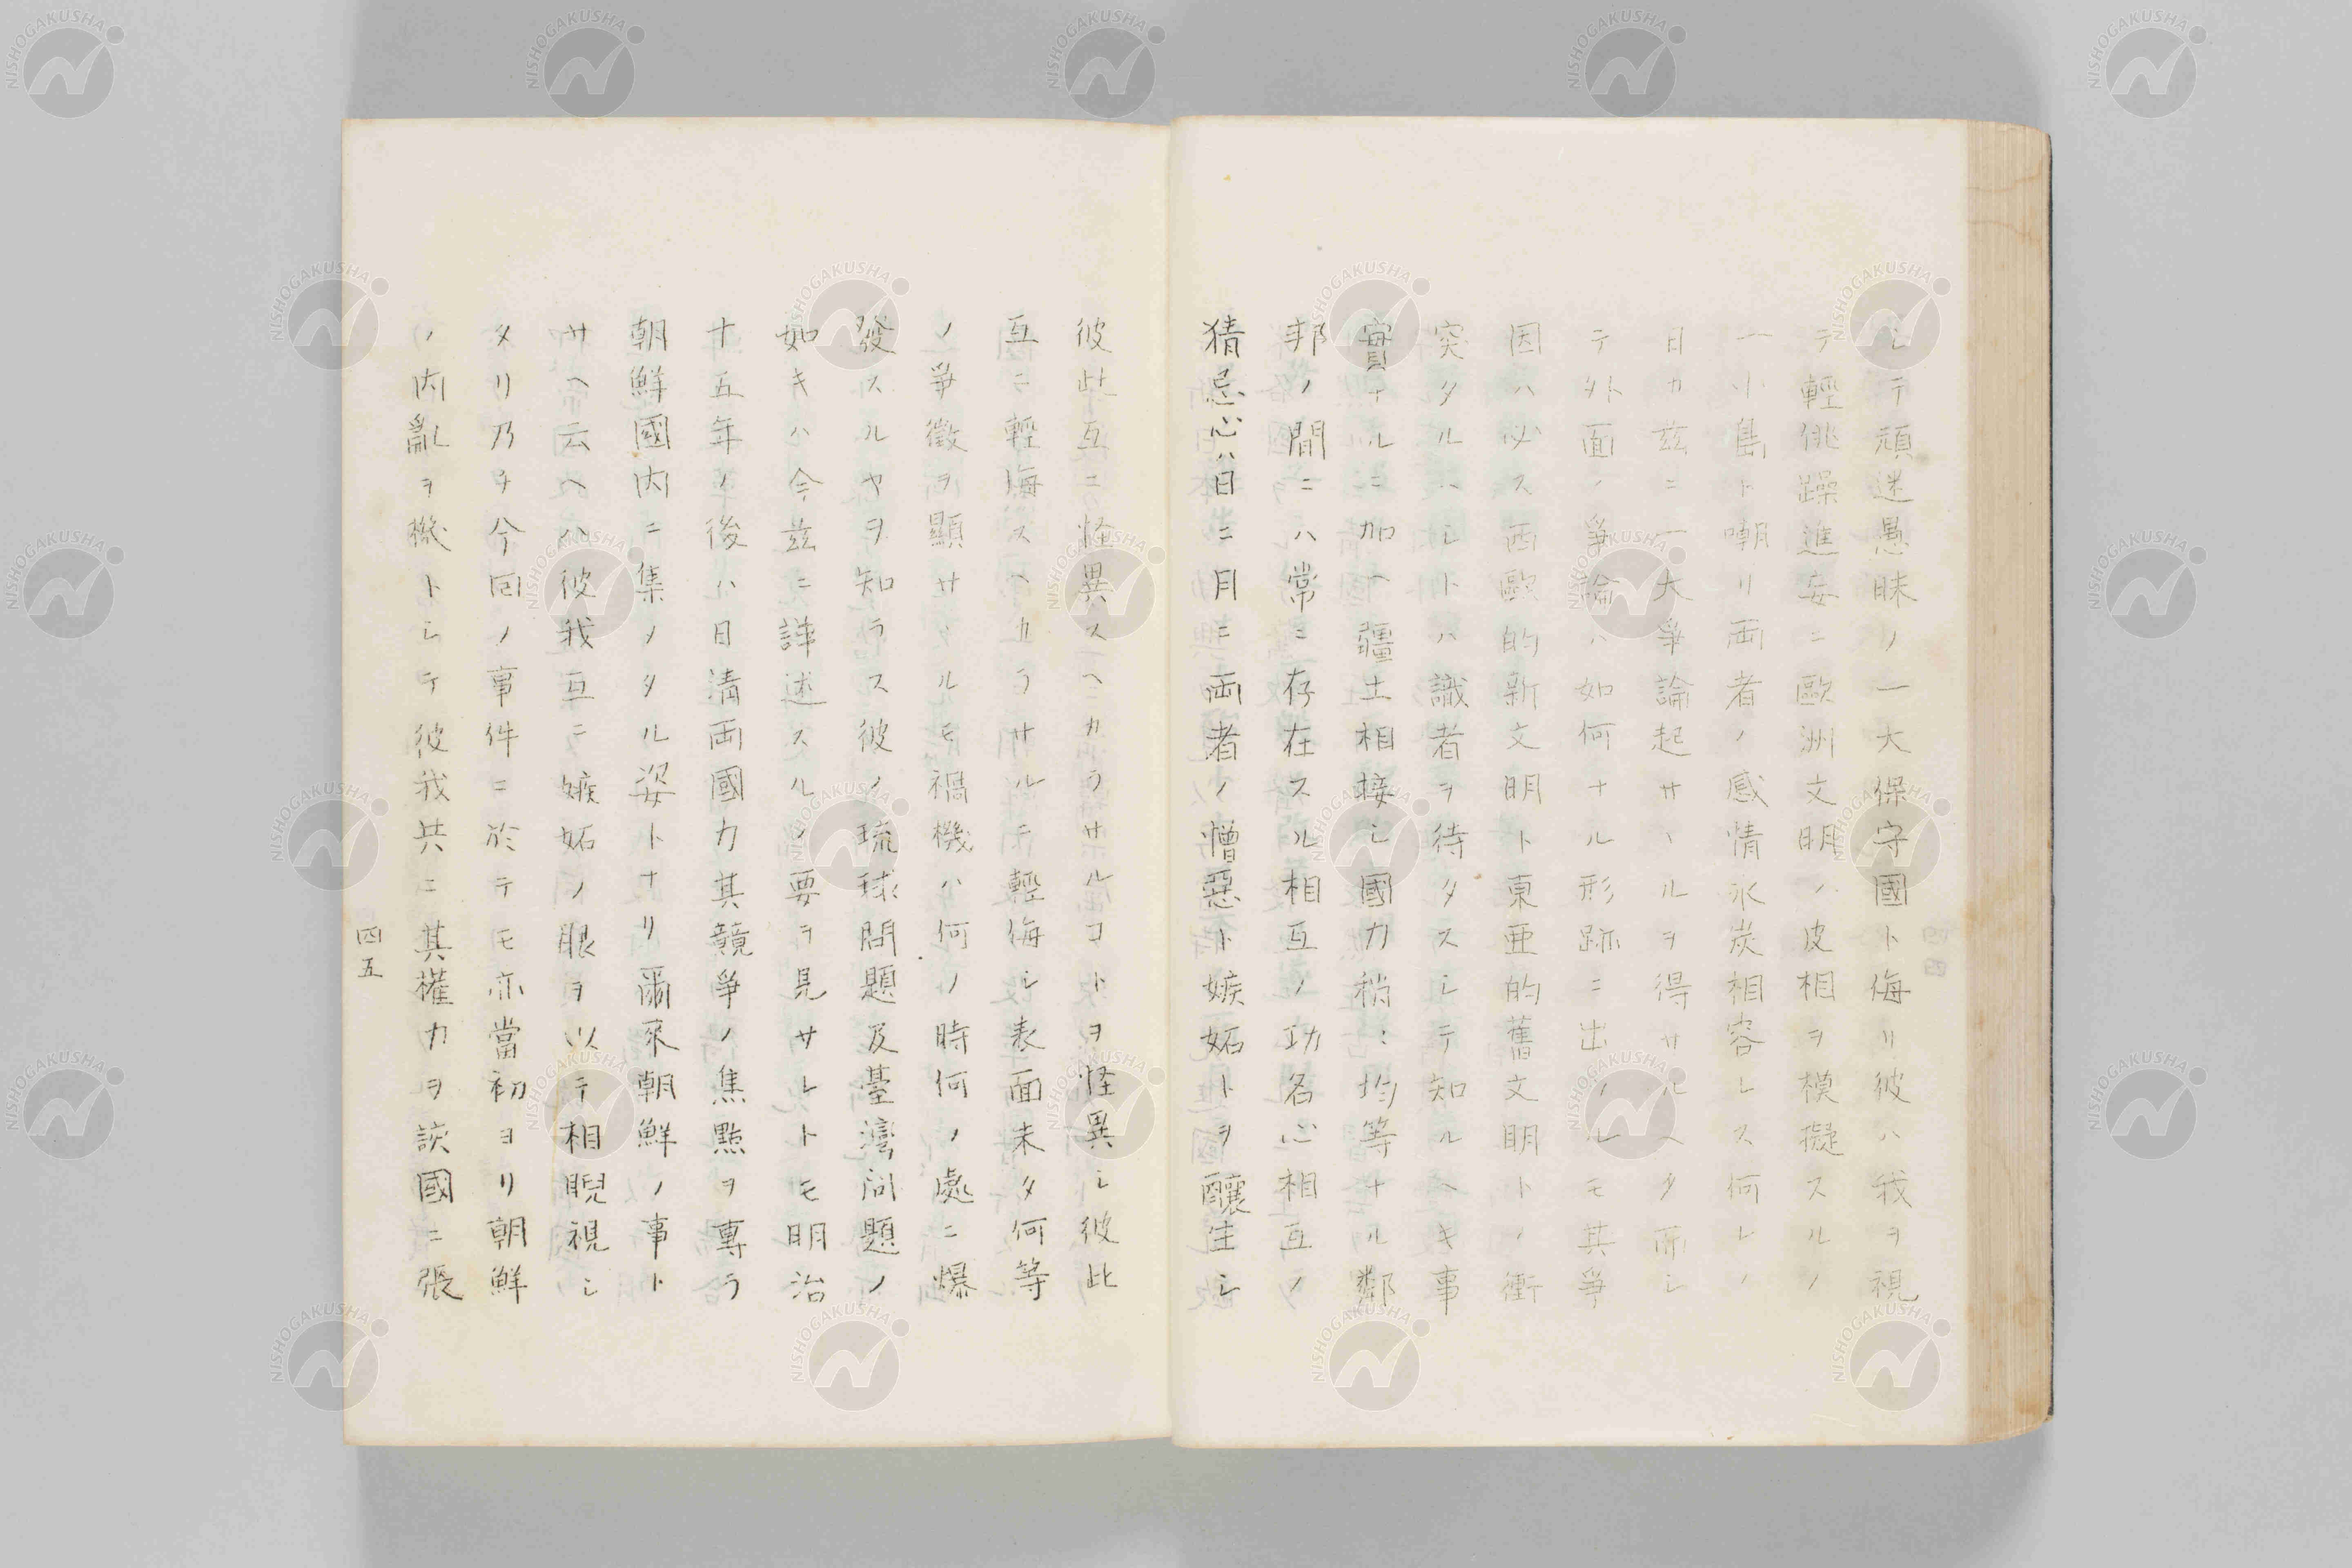 シテ頑迷愚昧ノ一大保守國ト侮リ彼ハ我ヲ視
テ輕佻躁進妄ニ歐洲文明ノ皮相ヲ模擬スルノ
一小島ト嘲リ両者ノ感情氷炭相容レス何レノ
日カ茲ニ一大爭論起サヽルヲ得サルヘク而シ
テ外面ノ爭論ハ如何ナル形跡ニ出ツルモ其爭
因ハ必ス西歐的新文明ト東亜的舊文明トノ衝
突タルヘシトハ識者ヲ待タスシテ知ルヘキ事
實ナルニ加ヘ疆土相接シ國力稍〻均等ナル鄰
邦ノ間ニハ常ニ存在スル相互ノ功名心相互ノ
猜忌心ハ日ニ月ニ両者ノ憎惡ト嫉妬トヲ釀生シ
彼此互ニ怪異スヘカラサルコトヲ怪異シ彼此
互ニ輕侮スヘカラサルニ輕侮シ表面未タ何等
ノ爭徵ヲ顯サヽルモ禍機ハ何ノ時何ノ處ニ爆
發スルヤヲ知ラス彼ノ琉球問題及臺灣問題ノ
如キハ今茲ニ詳述スルノ要ヲ見サレトモ明治
十五年ノ後ハ日清両國力其競爭ノ焦點ヲ專ラ
朝鮮國内ニ集ノタル姿トナリ爾來朝鮮ノ事ト
サヘ云ヘハ彼我互ニ嫉妬ノ眼ヲ以テ相睨視シ
タリ乃チ今回ノ事件ニ於テモ亦當初ヨリ朝鮮
ノ内亂ヲ機トシテ彼我共ニ其權力ヲ該國ニ張
四五
NISHOGAKUSHA